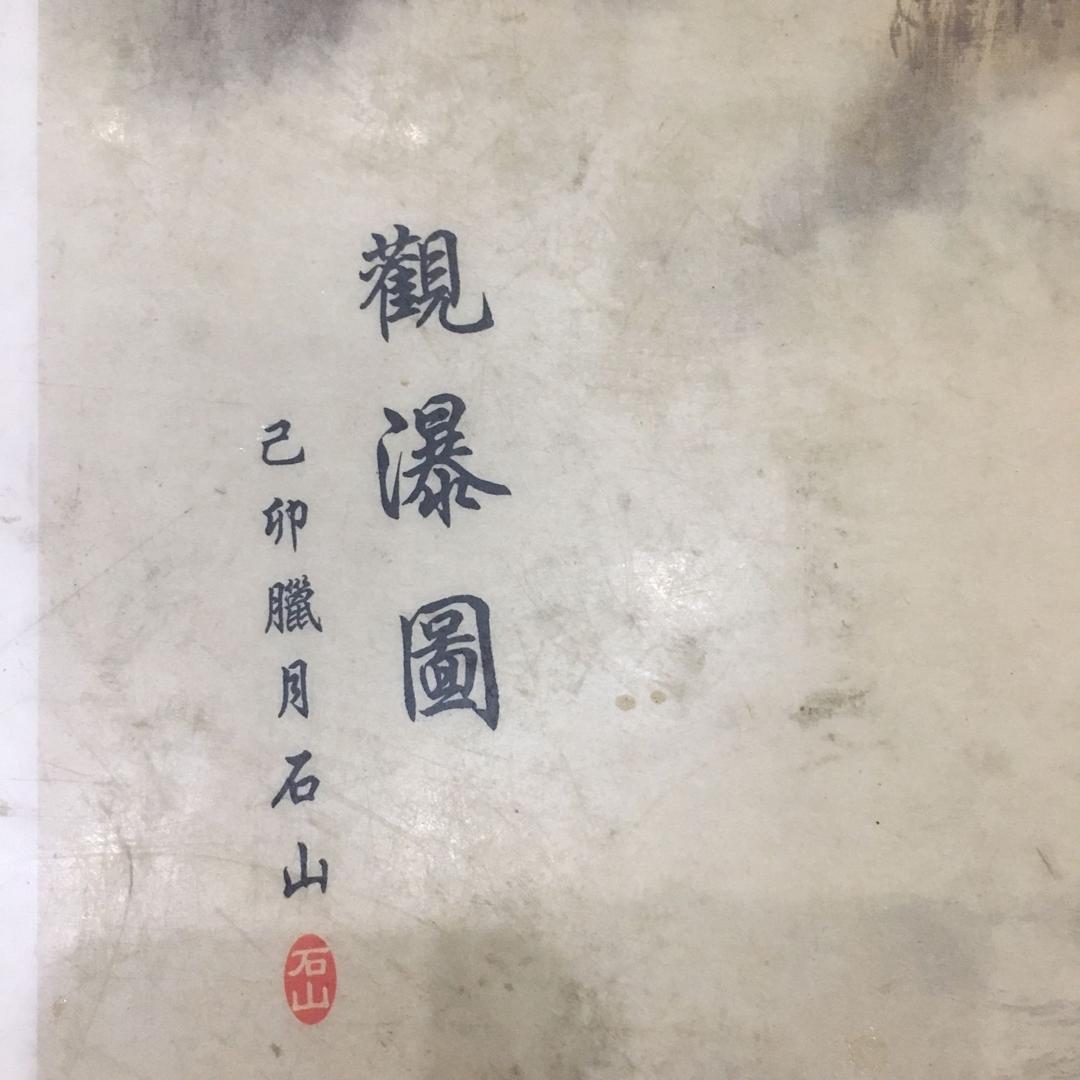 觀瀑圖
己卯臘月石山
石山